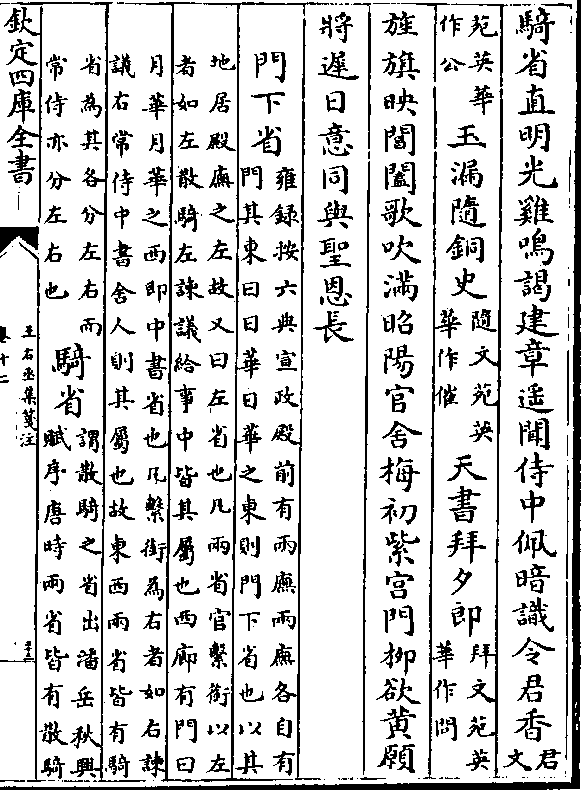 騎省直明光雞鳴謁建章遥聞侍中佩暗識令君香君文
苑英華作公玉漏隨銅史隨文苑英華作催天書拜夕郎拜文苑英華作問
旌旗映閶闔歌吹滿昭陽官舍梅初紫宫門柳欲黄願
將遲日意同與聖恩長
門下省雍録按六典宣政殿前有兩廡兩廡各自有門其東曰日華日華之東則門下省也以其
地居殿廡之左故又曰左省也凡兩省官繫銜以左者如左散騎左諫議給事中皆其屬也西廊有門曰
月華月華之西即中書省也凡繫銜為右者如右諫議右常侍中書舍人則其屬也故東西兩省皆有騎
省為其各分左右而常侍亦分左右也騎省謂散騎之省出潘岳秋興賦序唐時兩省皆有散騎
欽定四庫全書
王右丞集箋注
卷十二